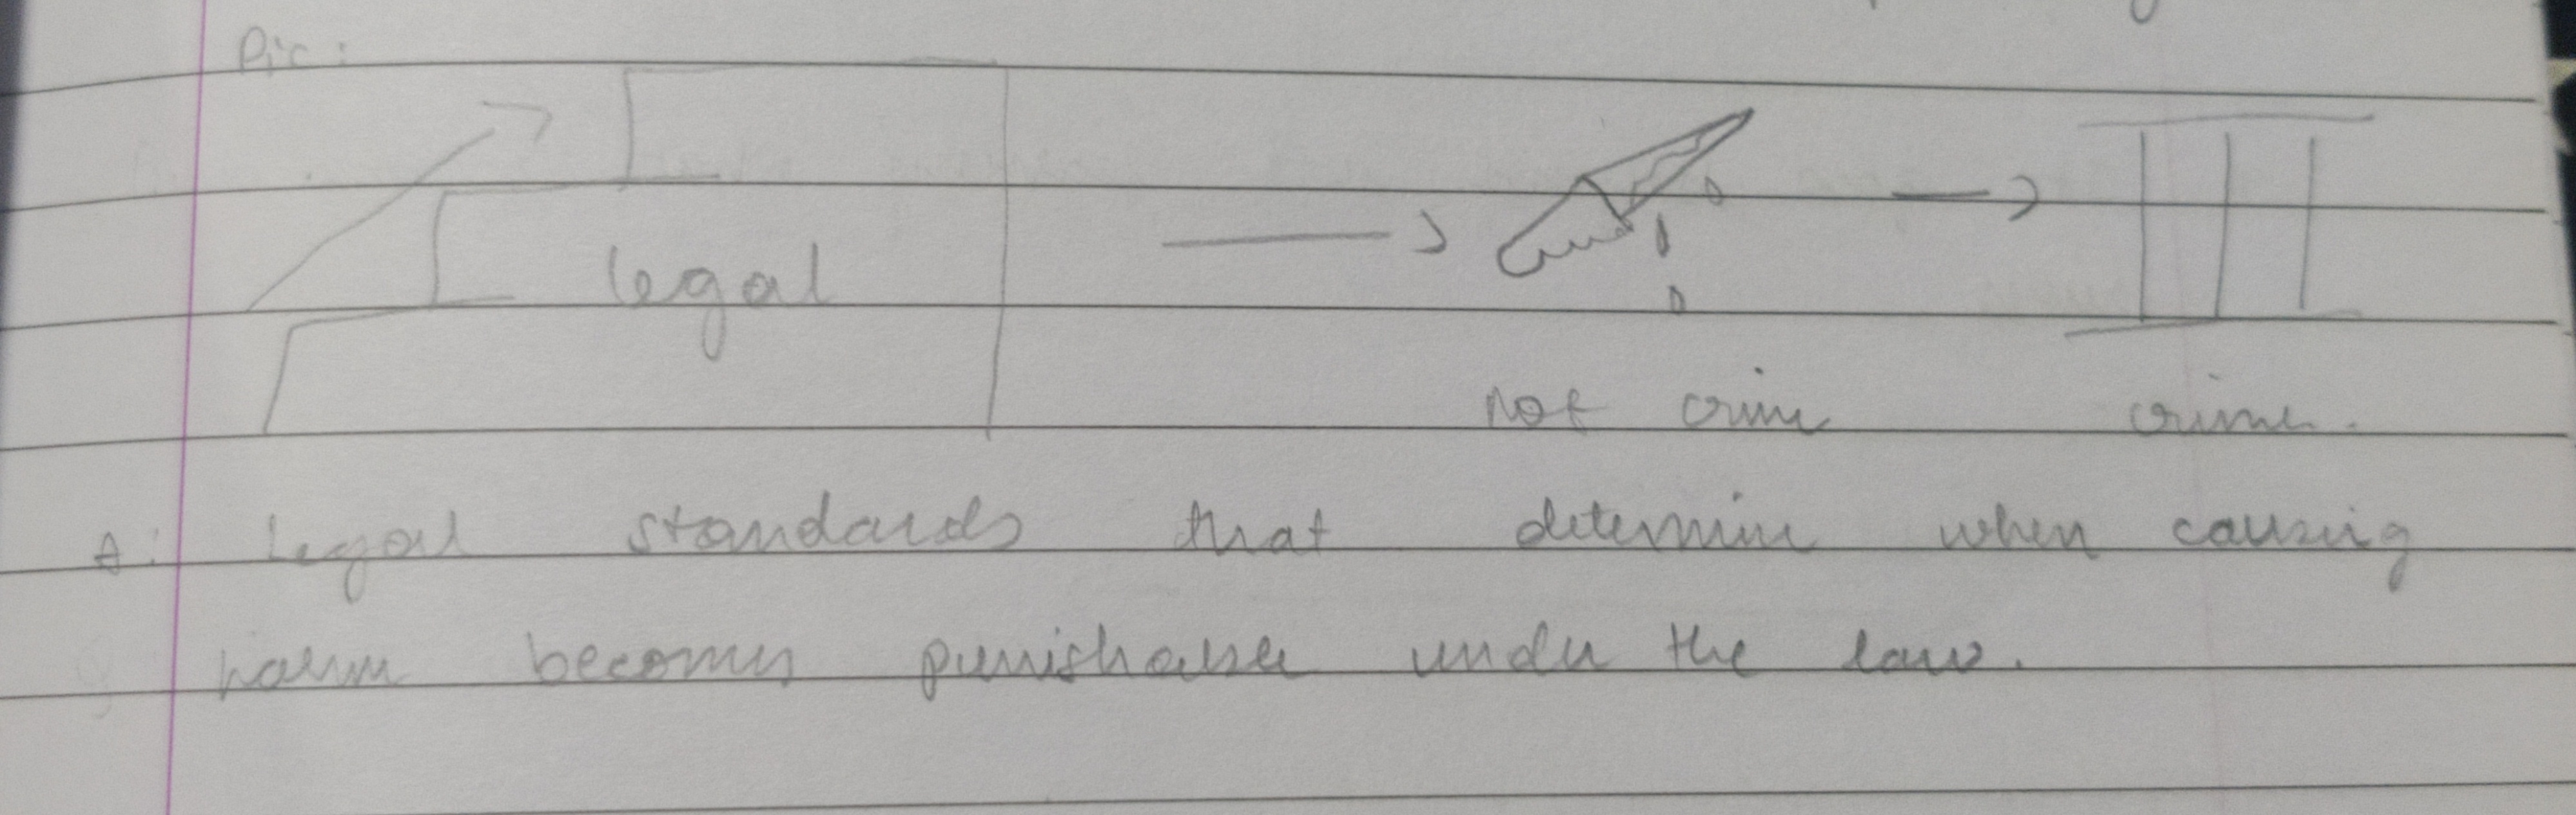 Pic:
legal
not crime crime.
A: Legal standards that determine when causing
harm becomes punishable under the law.